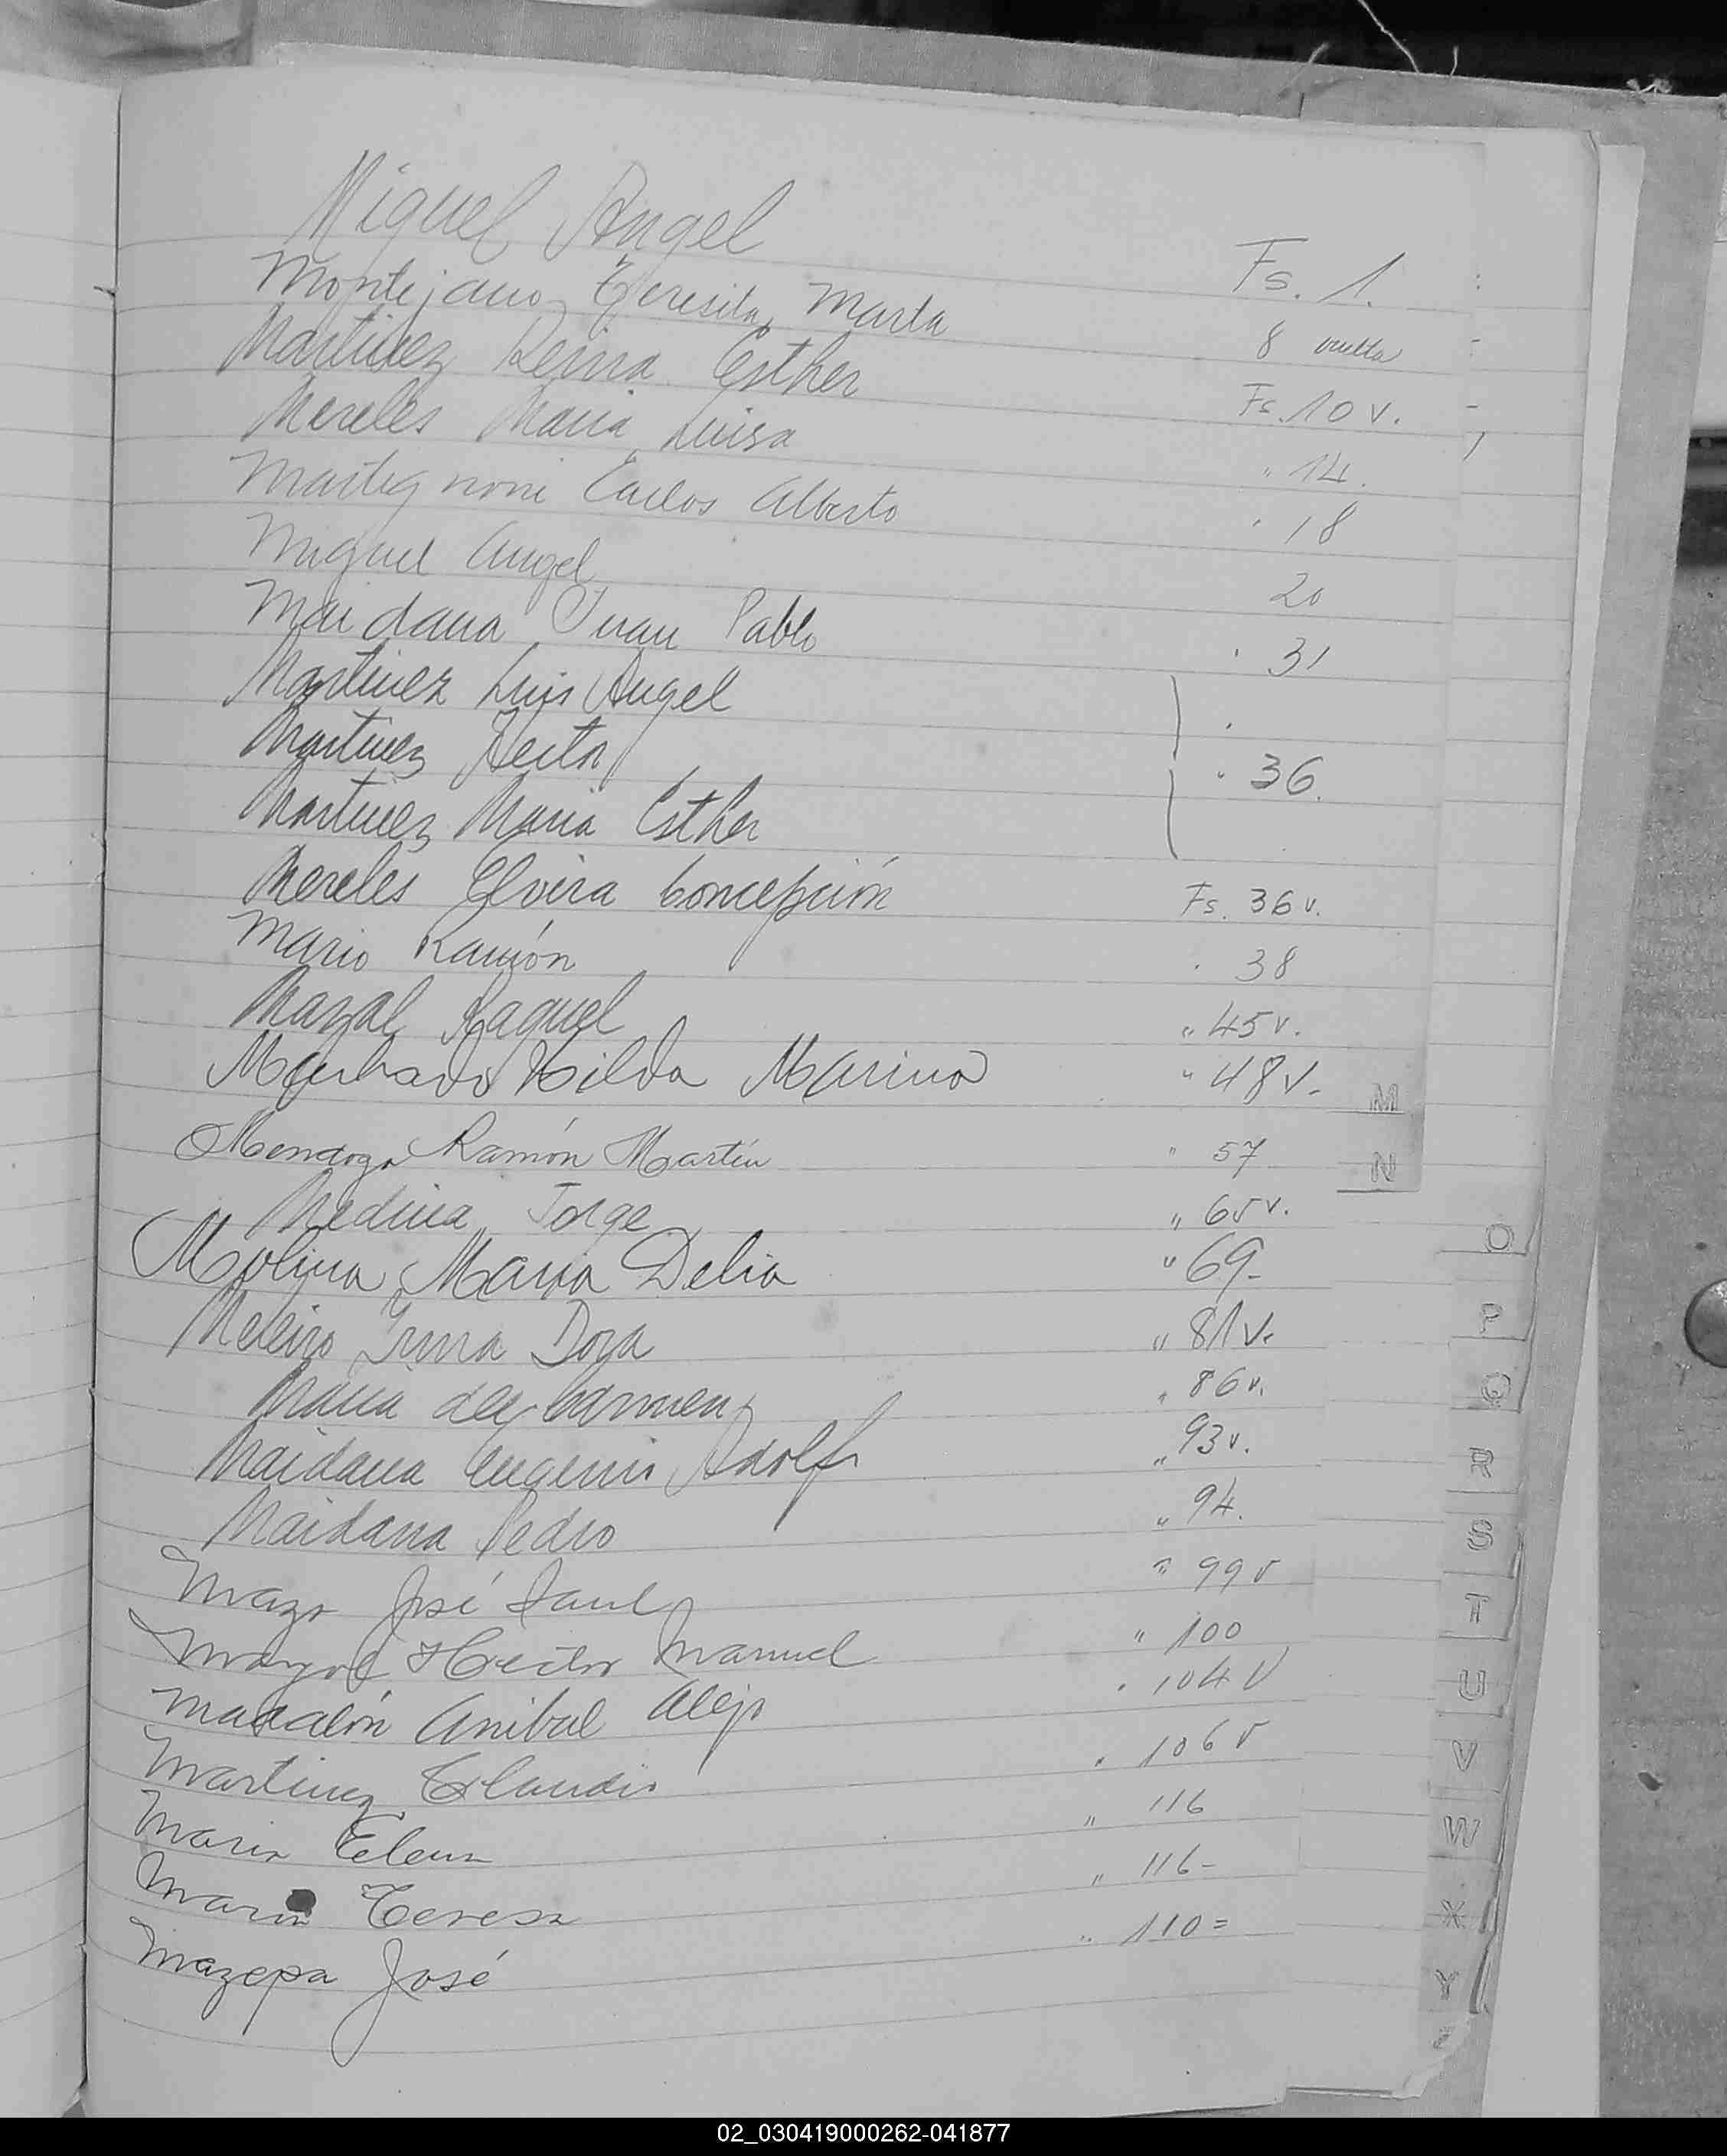 Miguel Angel Fs. 1.
Montejano Teresita Marta 8 vuelta
Martinez Reina Esther Fs. 10 v.
Mereles Maria Luisa " 14.
Martignoni Carlos Alberto " 18
Miguel Angel 20
Maidana Juan Pablo " 31
Martinez Luis Angel "
Martinez Hector " 36.
Martinez Maria Esther
Mereles Elvira Concepción Fs. 36 v.
Mario Ramón " 38
Mazal Raquel " 45 v.
Machado Hilda Marina " 48 v.
Mendoza Ramón Martín " 57
Medina Jorge " 65 v.
Molina Maria Delia " 69-
Irma Dora " 81 v.
Maria del Carmen " 86 v.
Maidana Eugenio Adolfo " 93 v.
Maidana Pedro " 94.
Mazo José Saul " 99 v
Mayol Hector Manuel " 100
Anibal Alejo " 104 v
Martinez Claudio " 106 v
Maria Elena " 116
Maria Teresa " 116-
Mazepa José " 110=
M
N
O
P
Q
R
S
T
U
V
W
X
Y
Z
02_030419000262-041877